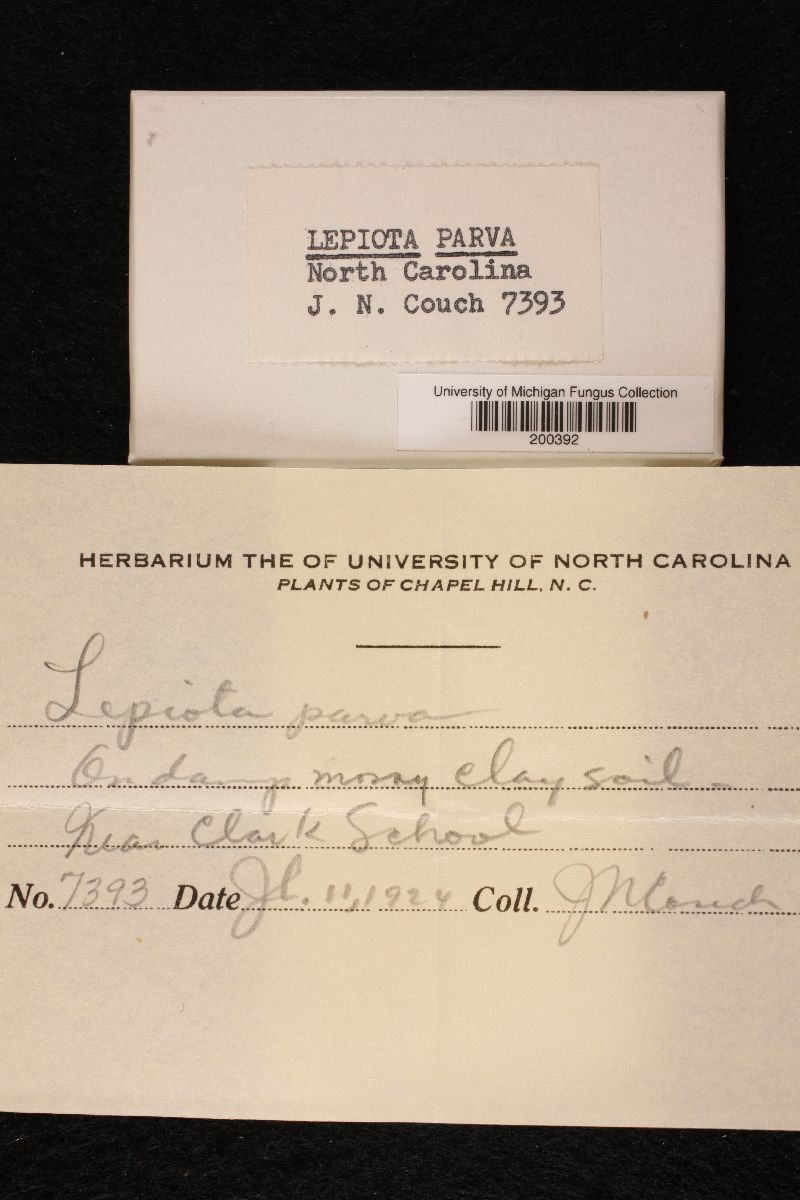 LEPIOTA PARVA
North Carolina
J. N. Couch 7393
University of Michigan Fungus Collection
200392
HERBARIUM THE OF UNIVERSITY OF NORTH CAROLINA
PLANTS OF CHAPEL HILL, N. C.
Lepiota parva
On damp mossy clay soil -
Near Clark School
No. 7393 Date Jl. 11, 1924 Coll. J N Couch